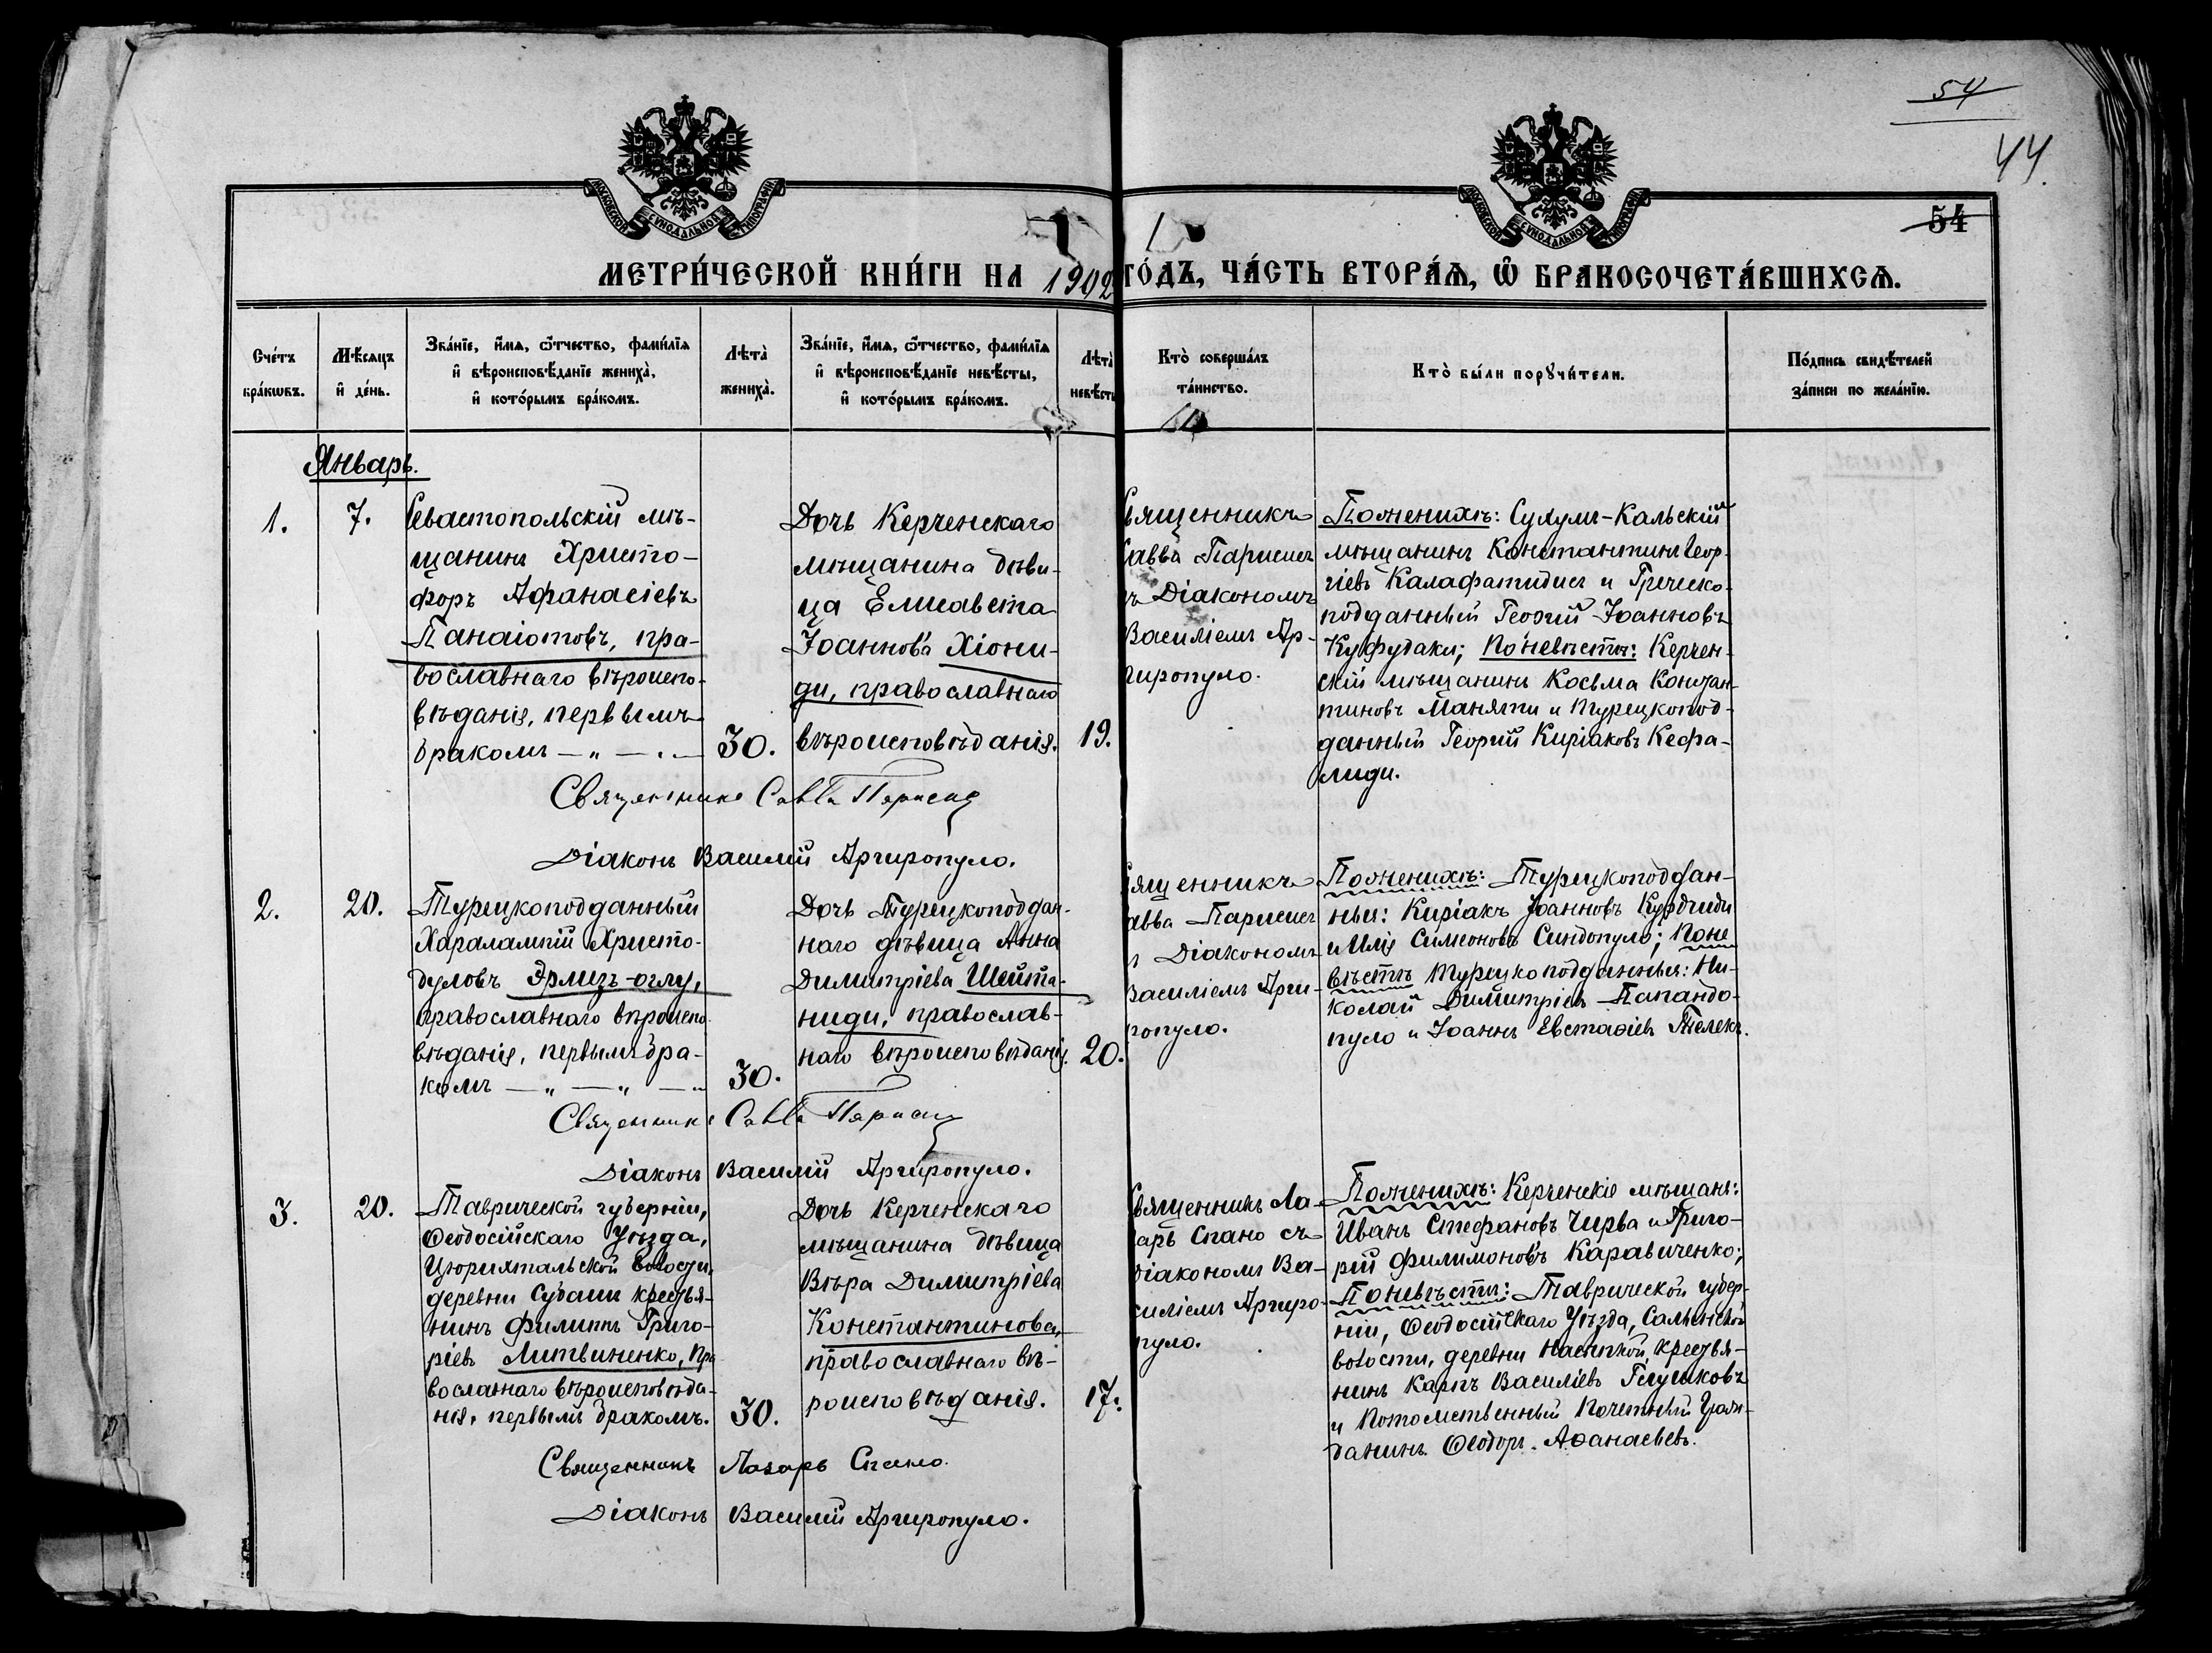 54
44.
54
МОСКОВСКОЙ СѴНОДАЛЬНОЙ ТИПОГРАФІИ
МОСКОВСКОЙ СѴНОДАЛЬНОЙ ТИПОГРАФІИ
МЕТРИ́ЧЕСКОЙ КНИ́ГИ НА 1902 ГО́ДЪ, ЧА́СТЬ ВТОРА́Я, Ѡ҆ БРАКОСОЧЕТА́ВШИХСЯ.
Сче́тъ
бра́кѡвъ.
Мѣ́сяцъ
и҆ де́нь.
Зва́нїе, и҆́мя, ѻ҆́тчество, фами́лїя
и҆ вѣроисповѣ́данїе жениха̀,
и҆ кото́рымъ бра́комъ.
Лѣта̀
жениха̀.
Зва́нїе, и҆́мя, ѻ҆́тчество, фами́лїя
и҆ вѣроисповѣ́данїе невѣ́сты,
и҆ кото́рымъ бра́комъ.
Лѣта̀
невѣ́сты
Кто̀ соверша́лъ
та́инство.
Кто̀ бы́ли порꙋчи́тели.
По́дпись свидѣ́телей
за́писи по жела́нїю.
Январь.
1.
7.
Севастопольскій мѣ-
щанинъ Христо-
форъ Афанасіевъ
Панаіотовъ, пра-
вославнаго вѣроиспо-
вѣданія, первымъ
бракомъ — „ — „ —
30.
Дочь Керченскаго
мѣщанина дѣви-
ца Елисавета
Іоаннова Хіони-
ди, православнаго
вѣроисповѣданія.
19.
Священникъ
Савва Парисис
съ Діакономъ
Василіемъ Ар-
гиропуло.
По женихѣ: Сухумъ-Кальскій
мѣщанинъ Константинъ Геор-
гіевъ Калафатидисъ и Греческо-
подданный Георгій Іоанновъ
Куфудаки; По невѣстѣ: Керчен-
скій мѣщанинъ Косьма Констан-
тиновъ Маняти и Турецкопод-
данный Георгій Киріаковъ Кефа-
лиди.
Священникъ Савва Парисис
Діаконъ Василій Аргиропуло.
2.
20.
Турецкоподданный
Харалампій Христо-
дуловъ Эрмезъ-оглу,
православнаго вѣроиспо-
вѣданія, первымъ бра-
комъ — „ — „ — „
30.
Дочь Турецкоподдан-
наго дѣвица Анна
Димитріева Шейта-
ниди, православ-
наго вѣроисповѣданія.
20.
Священникъ
Савва Парисис
съ Діакономъ
Василіемъ Арги-
ропуло.
По женихѣ: Турецкоподдан-
ные: Киріакъ Іоанновъ Курдчиди
и Илія Симеоновъ Синдопуло; По не-
вѣстѣ Турецкоподданные: Ни-
колай Димитріевъ Папандо-
пуло и Іоаннъ Евстаѳіевъ Телекъ.
Священникъ Савва Парисис
Діаконъ Василій Аргиропуло.
3.
20.
Таврической губерніи,
Ѳеодосійскаго Уѣзда,
Цюрихтальской волости,
деревни Субаши крестья-
нинъ Филиппъ Григо-
ріевъ Литвиненко, пра-
вославнаго вѣроисповѣда-
нія, первымъ бракомъ.
30.
Дочь Керченскаго
мѣщанина дѣвица
Вѣра Димитріева
Константинова,
православнаго вѣ-
роисповѣданія.
17.
Священникъ Ла-
зарь Спано съ
Діакономъ Ва-
силіемъ Аргиро-
пуло.
По женихѣ: Керченскіе мѣщане:
Иванъ Стефановъ Чирва и Григо-
рій Филимоновъ Каравиченко;
По невѣстѣ: Таврической губер-
ніи, Ѳеодосійскаго Уѣзда, Салынской
волости, деревни Насыпкой, крестья-
нинъ Карпъ Василіевъ Глушковъ
и Потомственный Почетный Граж-
данинъ Ѳеодоръ Аѳанасьевъ.
Священникъ Лазарь Спано.
Діаконъ Василій Аргиропуло.